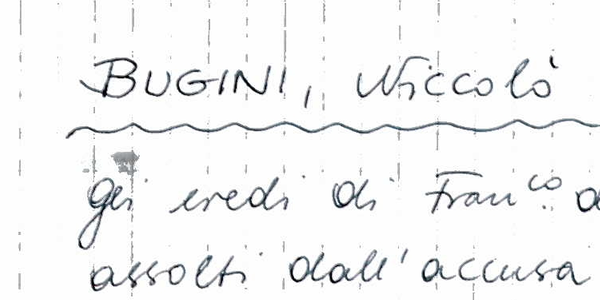 BUGINI, Niccolò
gli eredi di Fran.co
assolti dall'accusa